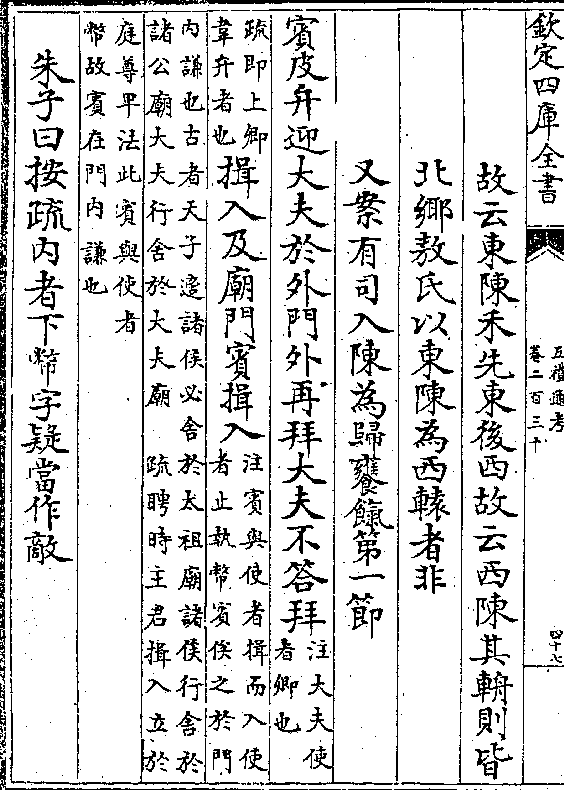 欽定四庫全書
五禮通考
卷二百三十
四十七
故云東陳禾先東後西故云西陳其輈則皆
北鄉敖氏以東陳為西轅者非
又案有司入陳為歸饔餼第一節
賓皮弁迎大夫於外門外再拜大夫不答拜
注大夫使
者卿也
疏即上卿
韋弁者也
揖入及廟門賓揖入
注賓與使者揖而入使
者止執幣賓俟之於門
內謙也古者天子適諸侯必舍於太祖廟諸侯行舍於
諸公廟大夫行舍於大夫廟 疏聘時主君揖入立於
庭尊卑法此賓與使者
幣故賓在門內謙也
朱子曰按疏內者下幣字疑當作敵